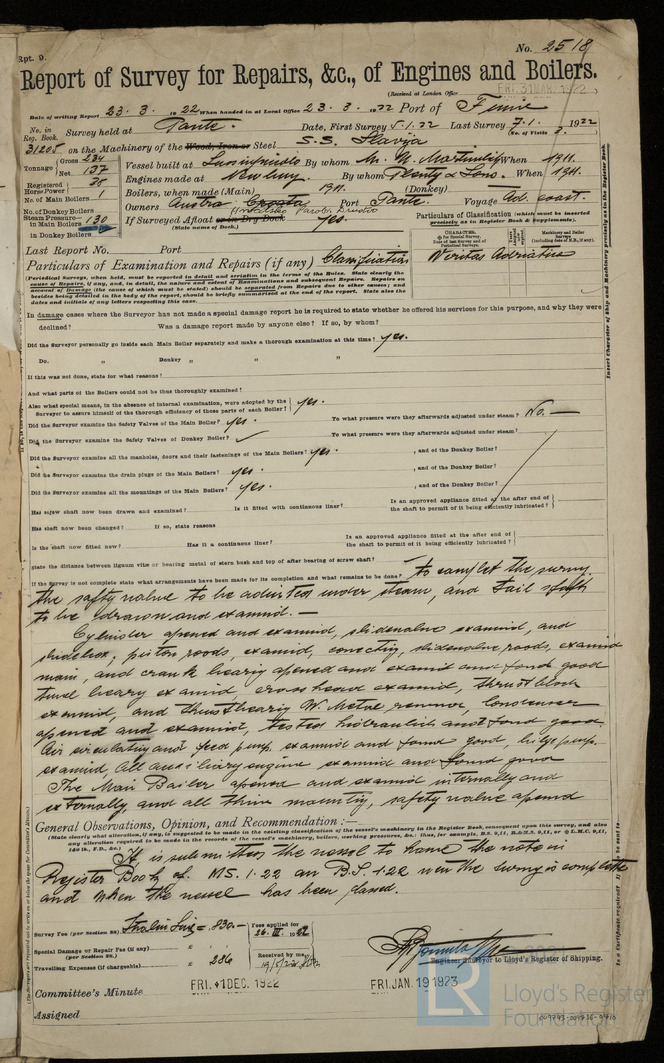 Rpt. 9.
No. 2518
Report of Survey for Repairs, &c., of Engines and Boilers.
(Received at London Office FRI. 31 MAR. 1922)
Date of writing Report 23.3.1922 When handed in at Local Office 23.3.1922 Port of Fiume
No. in Reg. Book. Survey held at Date, First Survey 5.1.22 Last Survey 7.1.1922
(No. of Visits 2.)
31205 on the Machinery of the Wood, Iron or Steel S.S. Slavija
Tonnage Gross 234 Net 137
Vessel built at Lussinpiccolo By whom M. U. Martinolich When 1911.
Registered Horse Power 38
Engines made at Newbury. By whom Plenty & Sons. When 1911.
No. of Main Boilers 1
Boilers, when made (Main) 1911. (Donkey)
No. of Donkey Boilers
Owners Port Voyage Ad. coast.
Steam Pressure in Main Boilers 130
in Donkey Boilers
If Surveyed Afloat or in Dry Dock yes.
(State name of Dock.)
Particulars of Classification (which must be inserted precisely as in Register Book & Supplements).
Last Report No. Port
Particulars of Examination and Repairs (if any) Classification
CHARACTER.
Veritas Adriatico
(Periodical Surveys, when held, must be reported in detail and seriatim in the terms of the Rules. State clearly the cause of Repairs, if any, and, in detail, the nature and extent of Examinations and subsequent Repairs. Repairs on account of Damage (the cause of which must be stated) should be separated from Repairs due to other causes; and besides being detailed in the body of the report, should be briefly summarised at the end of the report. State also the dates and initials of any letters respecting this case.
Insert Character of Ship and Machinery precisely as in the Register Book.
In damage cases where the Surveyor has not made a special damage report he is required to state whether he offered his services for this purpose, and why they were declined? Was a damage report made by anyone else? If so, by whom?
Did the Surveyor personally go inside each Main Boiler separately and make a thorough examination at this time? yes.
Do. " Donkey " " "
If this was not done, state for what reasons?
And what parts of the Boilers could not be thoroughly examined?
Also what special means, in the absence of internal examination, were adopted by the Surveyor to assure himself of the thorough efficiency of those parts of each Boiler? yes.
Did the Surveyor examine the Safety Valves of the Main Boiler? yes. To what pressure were they afterwards adjusted under steam? No.—
Did the Surveyor examine the Safety Valves of Donkey Boiler? To what pressure were they afterwards adjusted under steam?
Did the Surveyor examine all the manholes, doors and their fastenings of the Main Boilers? yes. , and of the Donkey Boiler?
Did the Surveyor examine the drain plugs of the Main Boilers? yes. , and of the Donkey Boiler?
Did the Surveyor examine all the mountings of the Main Boilers? yes. , and of the Donkey Boiler?
Has screw shaft now been drawn and examined? Is it fitted with continuous liner? Is an approved appliance fitted at the after end of the shaft to permit of it being efficiently lubricated?
Has shaft now been changed? If so, state reasons
Is the shaft now fitted new? Has it a continuous liner? Is an approved appliance fitted at the after end of the shaft to permit of it being efficiently lubricated?
State the distance between lignum vitæ or bearing metal of stern bush and top of after bearing of screw shaft?
If the Survey is not complete state what arrangements have been made for its completion and what remains to be done? To complet the survey
the safty valve to be adusted under steam, and tail shaft
to be drawn and examind.—
Cylinder opened and examind, slidevalve examind, and
slidebox, piston roods, examind, slidevalve roods, examind
main, and crank bearig opened and examid and fond good
tunel bearig examid, crosshead examid, thrust block
examind, and thrustbearig W. Metal renew, Condenser
opened and examind, tested and fond good
Air circulatig and feed pump examind and fond good, bilge pump
examind, all auxiliary engine examind and fond good
The Main Bailer opened and examid internally and
externally, and all mountig, safety valve opend
General Observations, Opinion, and Recommendation:—
(State clearly what alteration, if any, is suggested to be made in the existing classification of the vessel's machinery in the Register Book, consequent upon this survey, and also any alteration required to be made in the records of the vessel's machinery, boilers, working pressures, &c.: thus, for example, B.S. 9,11, B.&M.S. 9,11, or L.M.C. 9,11, 140 lb., F.D., &c.)
It is submitted the vessel to have the note in
Register Book of MS. 1.22 an B.S. 1.22 wen the survy is complette
and when the vessel has been classed.
Survey Fee (per Section 28) = 830.—
Special Damage or Repair Fee (if any) (per Section 28.)
Travelling Expenses (if chargeable) 286
Fees applied for 26. III. 1922
Received by me,
Engineer Surveyor to Lloyd's Register of Shipping.
Committee's Minute FRI. 1 DEC. 1922 FRI. JAN. 19 1923
Assigned
LR Lloyd's Register Foundation